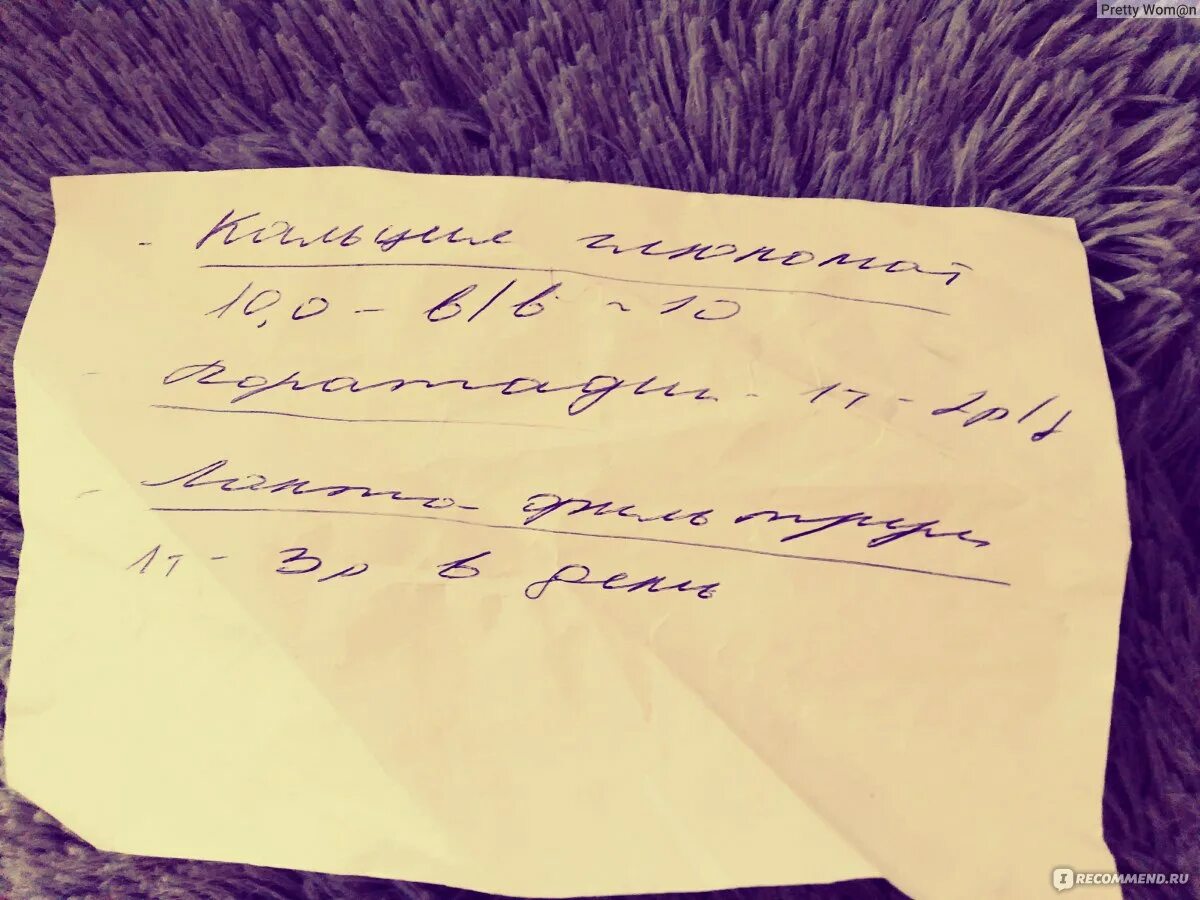 Pretty Wom@n
- Кальция глюконат
10,0 - в/в ~ 10
- Лоратадин - 1т - 2р/д
- Лакто-фильтрум
1т - 3р в день
IRECOMMEND.RU